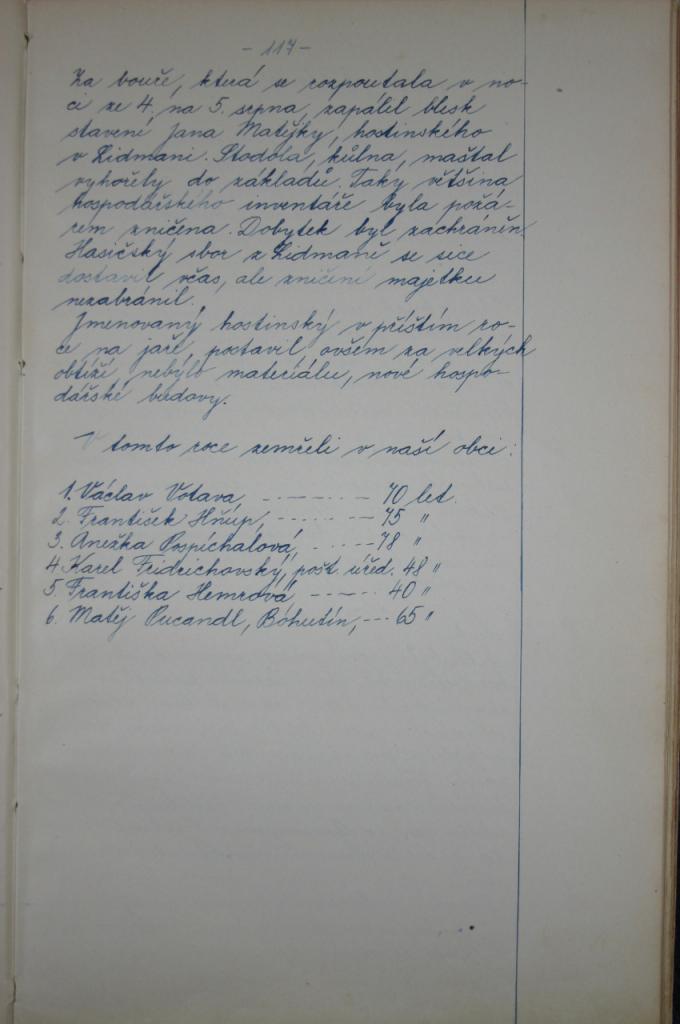 - 117 -
Za bouře, která se rozpoutala v no-
ci ze 4. na 5. srpna, zapálil blesk
stavení Jana Matějky, hostinského
v Lidmani. Stodola, kůlna, maštal
vyhořely do základů. Taky většina
hospodářského inventáře byla požá-
rem zničena. Dobytek byl zachráněn.
Hasičský sbor z Lidmaně se sice
dostavil včas, ale zničení majetku
nezabránil.
Jmenovaný hostinský v příštím ro-
ce na jaře, postavil, ovšem za velkých
obtíží, nebylo materiálu, nové hospo-
dářské budovy.
V tomto roce zemřeli v naší obci:
1. Václav Votava, - - - - - - 70 let.
2. František Hňup, - - - - - - 75 "
3. Anežka Pospíchalová, - - - - - 78 "
4. Karel Fridrichovský, pošt. úřed. 48 "
5. Františka Hemrová - - - - - 40 "
6. Matěj Pucandl, Bohutín, - - - 65 "